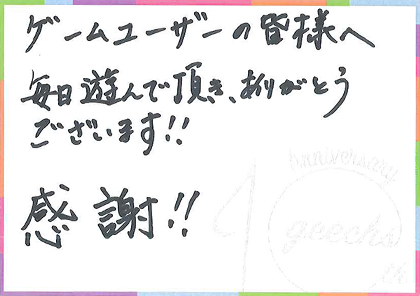 ゲームユーザーの皆様へ
毎日遊んで頂き、ありがとう
ございます!!
感謝!!
10
Anniversary
geechs